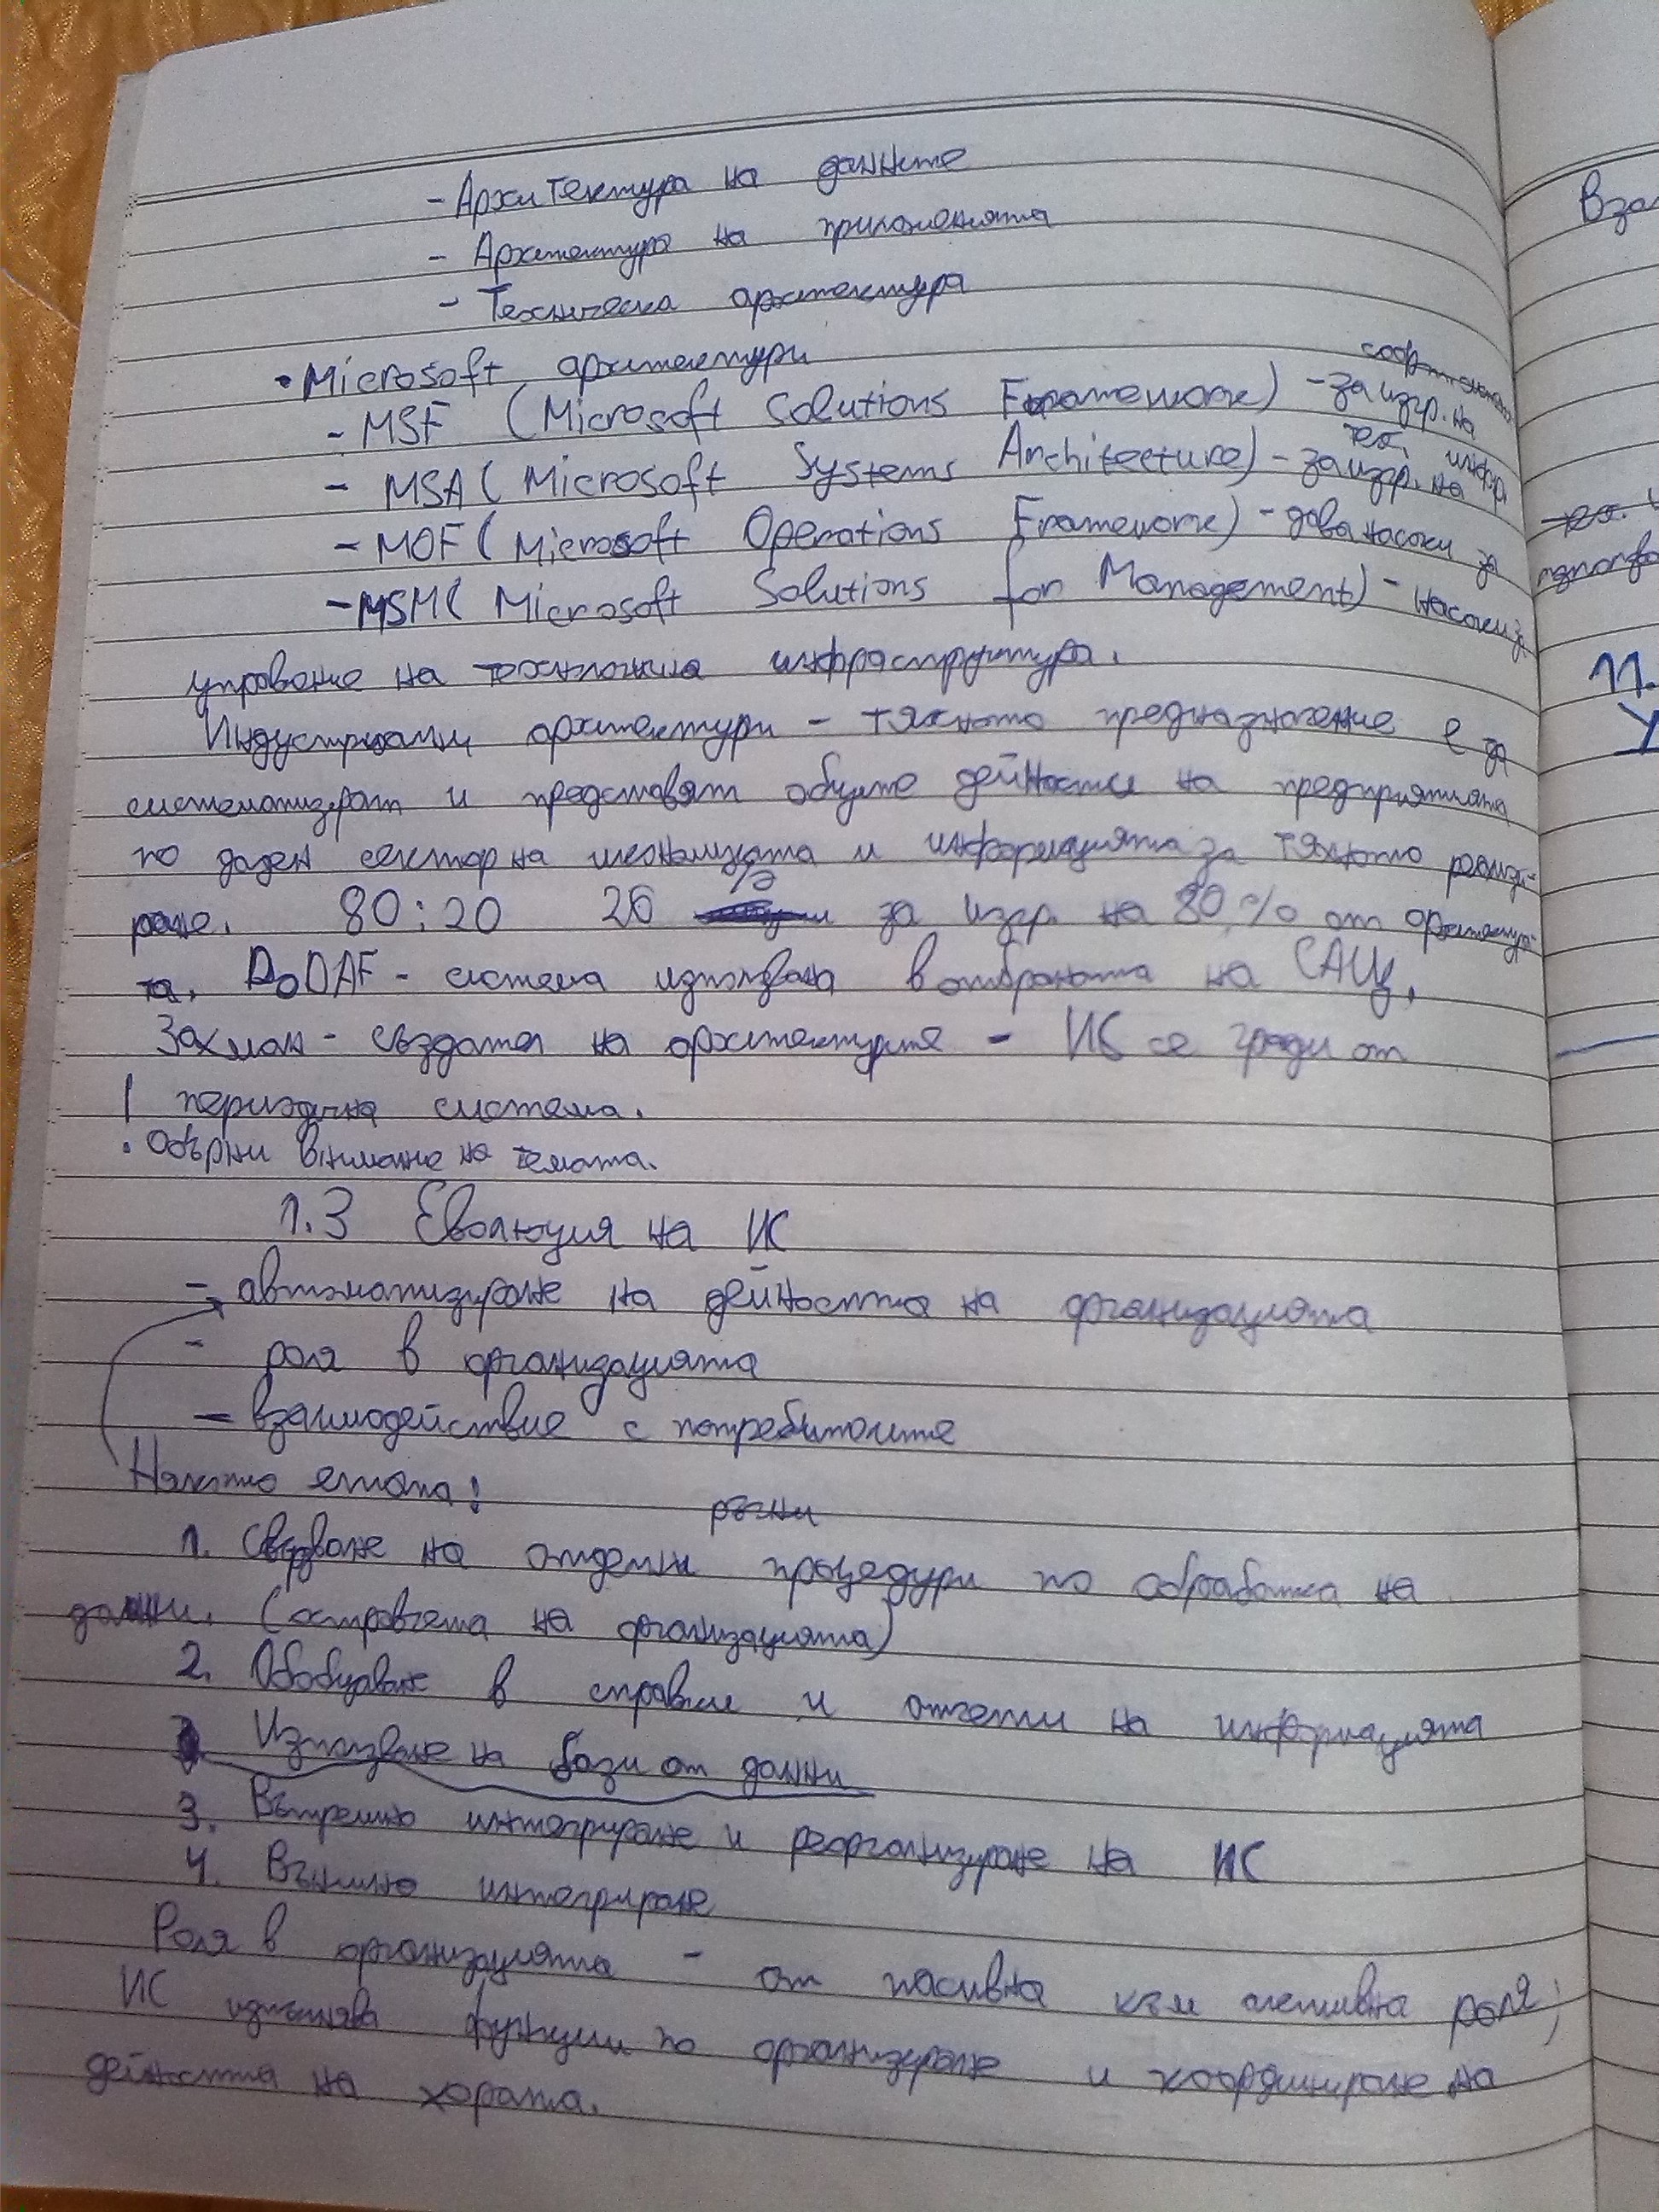 - Архитектура на данните
- Архитектура на приложенията
- Техническа архитектура
• Microsoft архитектури
- MSF (Microsoft Solutions Framework) - за изгр. на
- MSA (Microsoft Systems Architecture) - за изгр. на тех. инфр.
- MOF (Microsoft Operations Framework) - дава насоки за
- MSM (Microsoft Solutions for Management) - насоки за
управление на технологична инфраструктура.
Индустриални архитектури - тяхното предназначение е да
систематизират и представят общите дейности на предприятията
по даден сектор на икономиката и информацията за тяхното реализи-
ране. 80:20 20 % за изгр. на 80% от архитектура-
та. DoDAF - система използвана в отбраната на САЩ.
Захман - създател на архитектурите - ИС се гради от
! периодична система.
: Обърни внимание на темата.
1.3 Еволюция на ИС
- автоматизиране на дейността на организацията
- роля в организацията
- взаимодействие с потребителите
Няколко етапа!
ръчни
1. Свързване на отделни процедури по обработка на
данни. (островчета на организацията)
2. Обобщаване в справки и отчети на информацията
Използване на бази от данни
3. Вътрешно интегриране и реорганизиране на ИС
4. Външно интегриране
Роля в организацията - от пасивна към активна роля;
ИС изпълнява функции по организиране и координиране на
дейността на хората.
Вза
11.
У